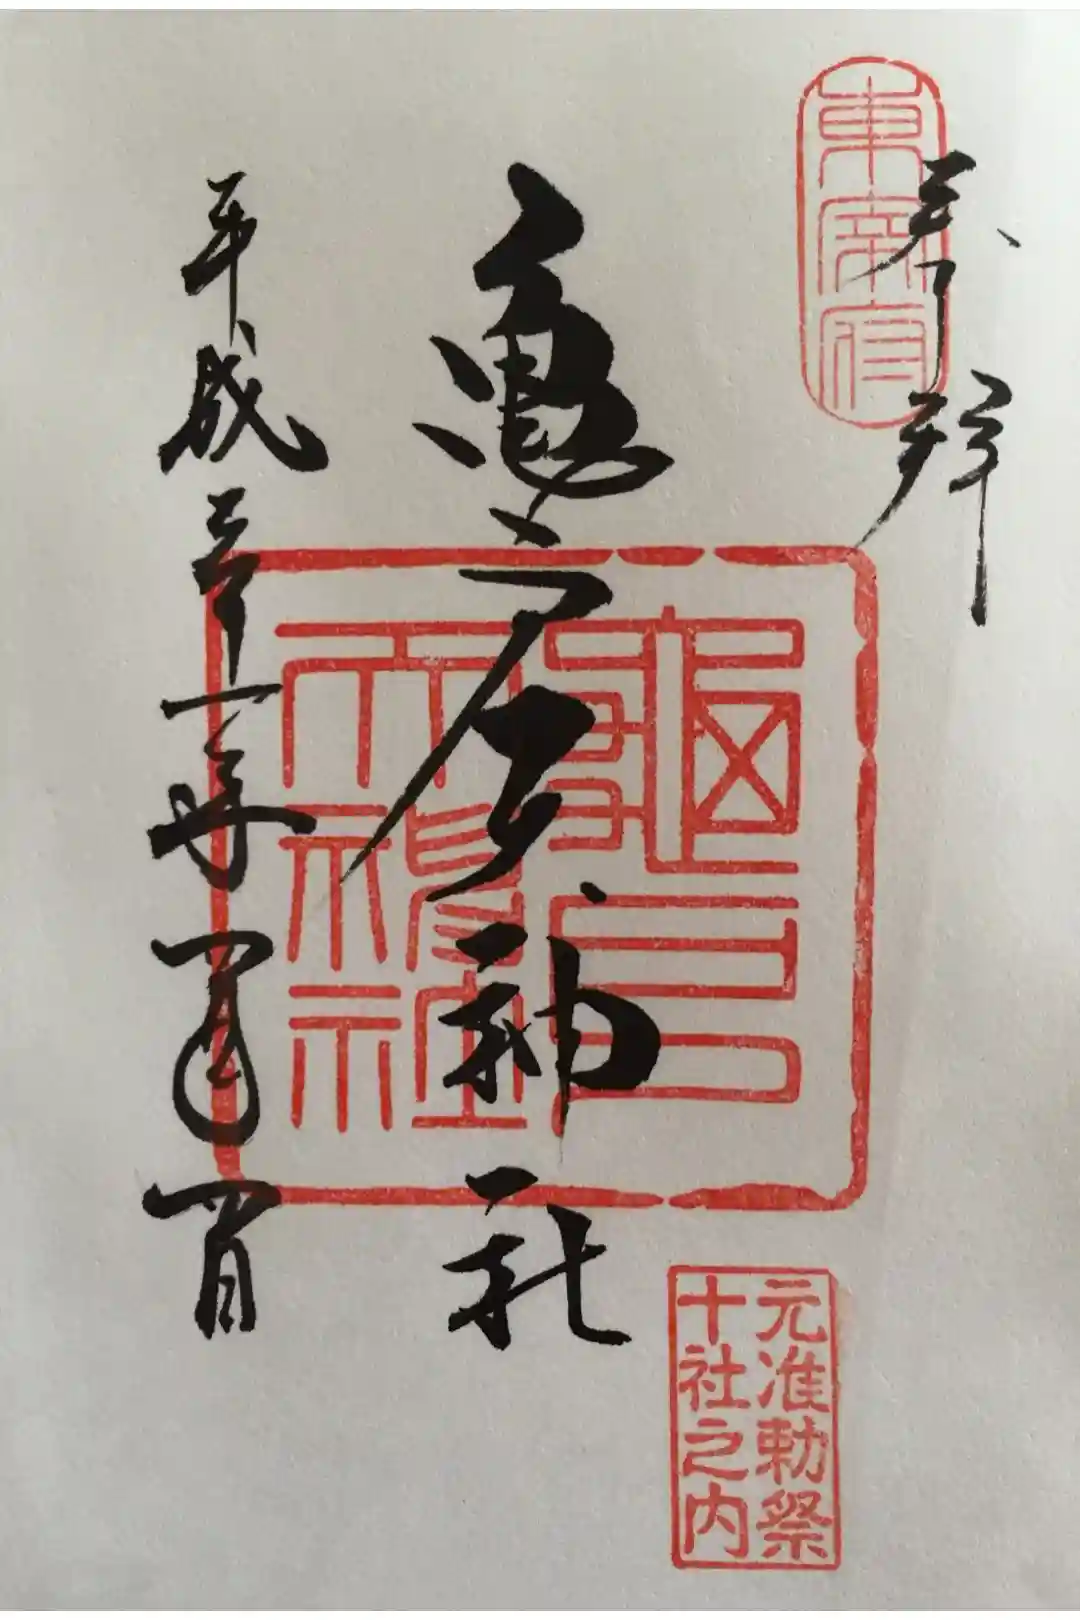 奉拝
東宰府
亀戸神社
龜戸
天神社
元准勅祭
十社之内
平成三十一年 月 日